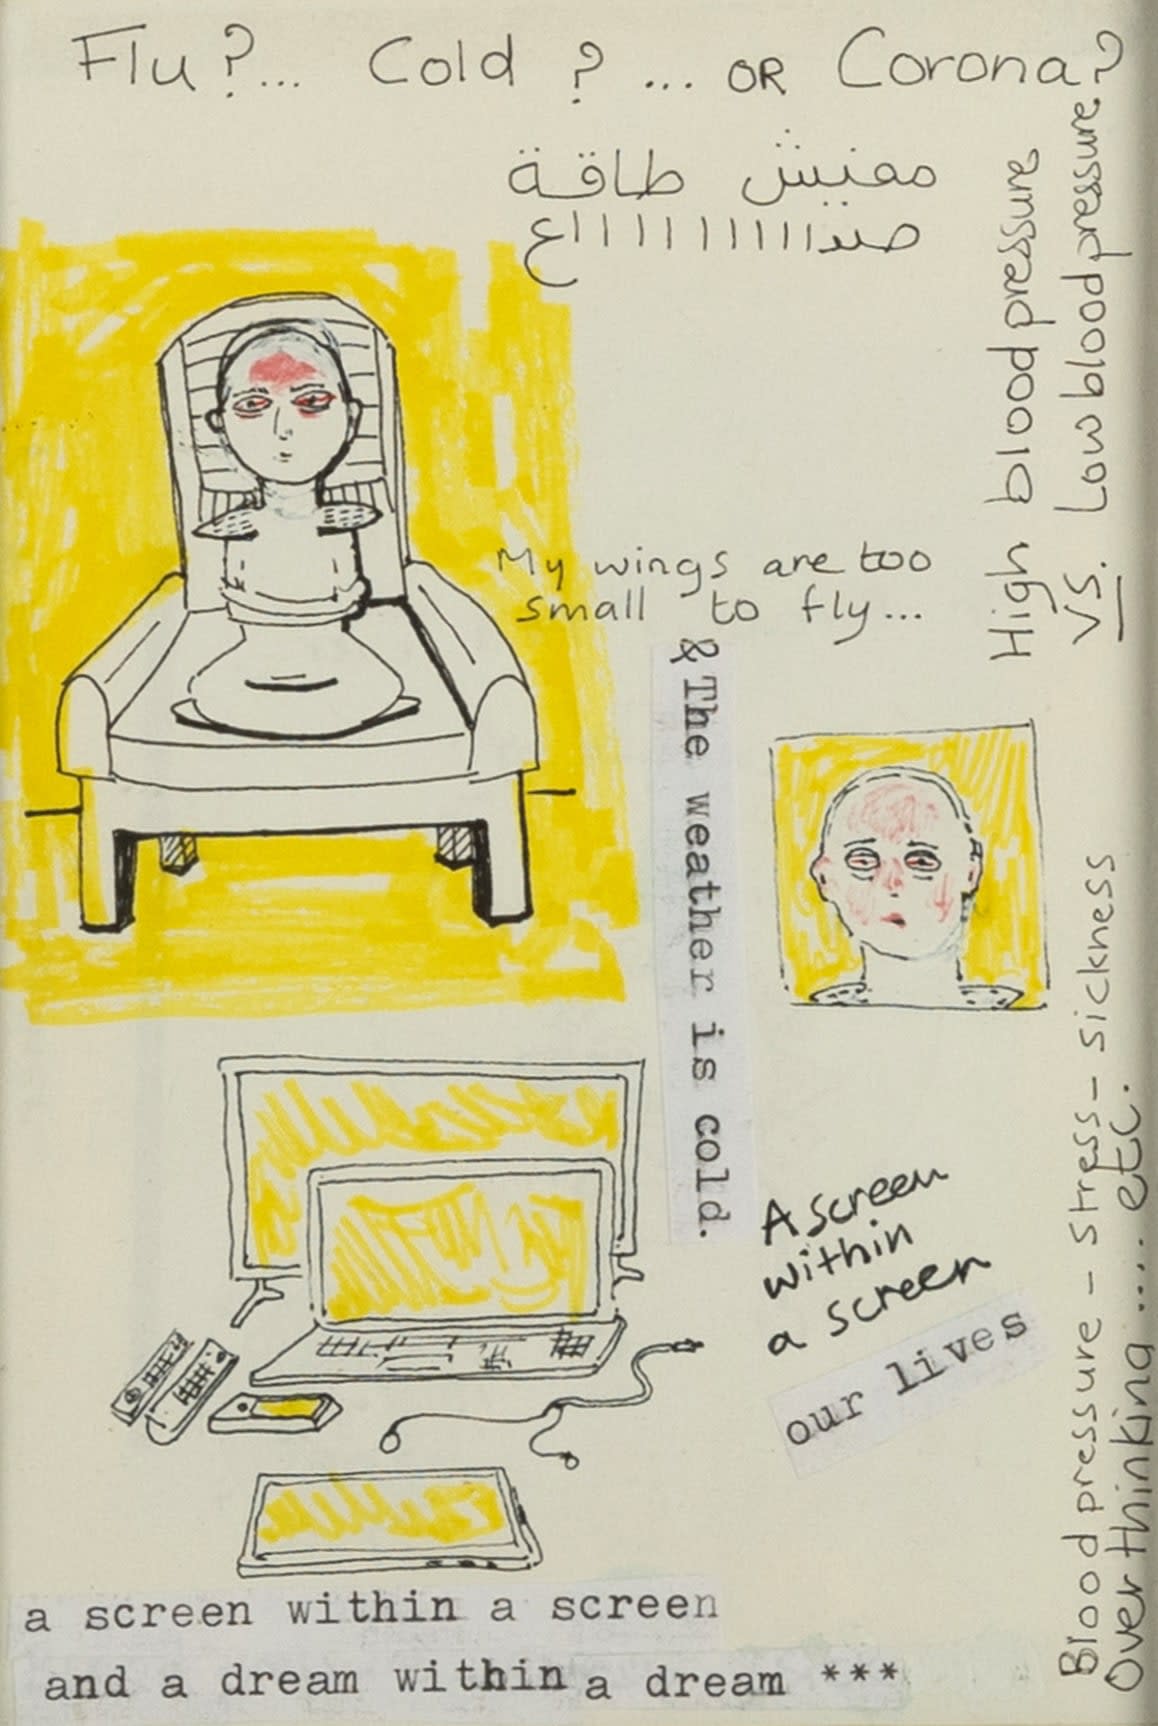 Flu?... Cold ? ... OR Corona?
مفيش طاقة
صداااااااااااع
High blood pressure
vs. Low blood pressure
My wings are too
small to fly...
& The weather is cold.
A screen
within
a screen
our lives
Blood pressure - stress - sickness
Over thinking .... etc.
a screen within a screen
and a dream within a dream ***